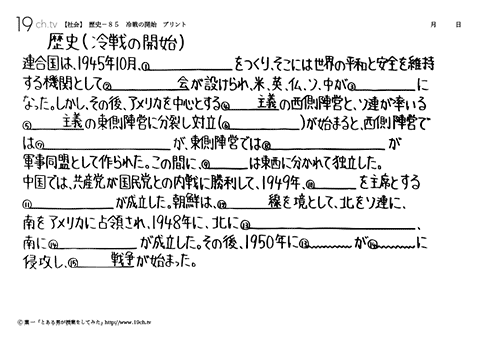 19 ch.tv 【社会】 歴史－85 冷戦の開始 プリント 月 日
歴史(冷戦の開始)
連合国は、1945年10月、①＿＿＿＿をつくり、そこには世界の平和と安全を維持
する機関として②＿＿＿＿会が設けられ、米、英、仏、ソ、中が③＿＿＿＿に
なった。しかし、その後、アメリカを中心とする④＿＿＿＿主義の西側陣営と、ソ連が率いる
⑤＿＿＿＿主義の東側陣営に分裂し対立(⑥＿＿＿＿)が始まると、西側陣営で
は⑦＿＿＿＿が、東側陣営では⑧＿＿＿＿が
軍事同盟として作られた。この間に、⑨＿＿＿＿は東西に分かれて独立した。
中国では、共産党が国民党との内戦に勝利して、1949年、⑩＿＿＿＿を主席とする
⑪＿＿＿＿が成立した。朝鮮は、⑫＿＿＿＿線を境として、北をソ連に、
南をアメリカに占領され、1948年に、北に⑬＿＿＿＿、
南に⑭＿＿＿＿が成立した。その後、1950年に⑬＿＿＿＿が⑭＿＿＿＿に
侵攻し、⑮＿＿＿＿戦争が始まった。
© 葉一「とある男が授業をしてみた」http://www.19ch.tv